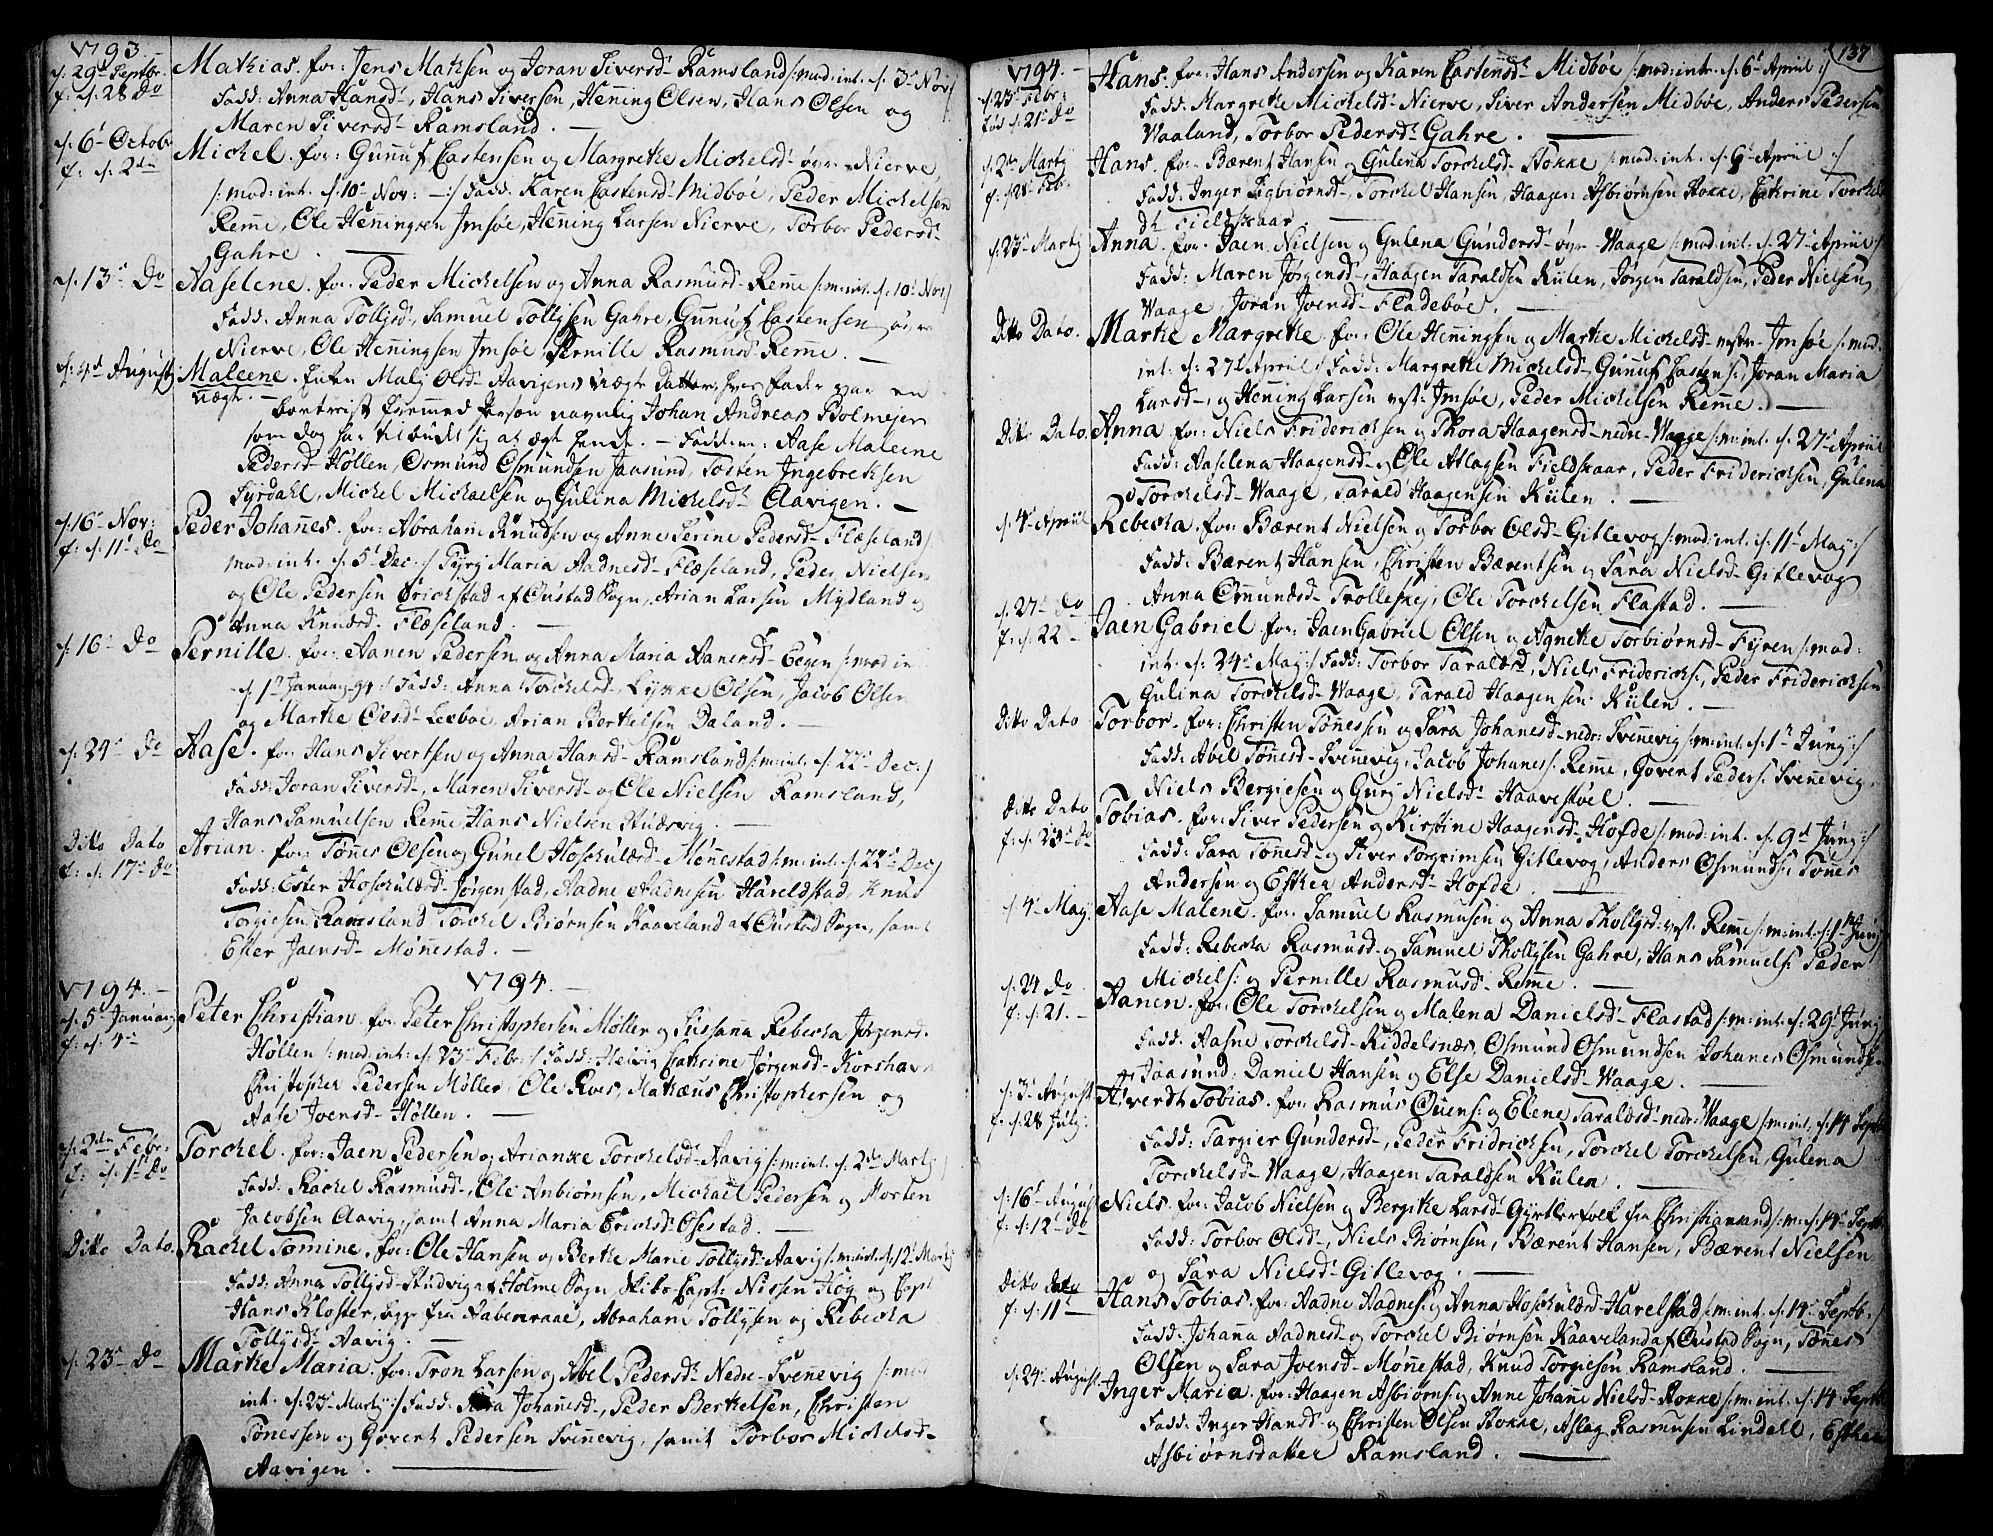 1793.
d: 29de Septbr. Mathias. for: Jens Mathsen og Joran Siversd: Ramsland /: mod: int. d: 3de Nov:/
f: d: 28 Do Fadd: Anna Hansd:, Hans Siversen, Henning Olsen, Hans Olsen og
Maren Siversd: Ramsland. —
d: 6te Octob: Michel. for: Gunuf Castensen og Margrethe Michelsd: øvr Nierve,
f: d: 2den /: mod: int. d: 10de Nov: —:/ Fadd: Karen Castensd: Midbøe, Peder Michelsen
Remme, Ole Henningsen Jmsøe, Henning Larsen Nierve, Torbor Pedersd:
Gahre. —
d: 13de Do Aaselene. for: Peder Michelsen og Anna Rasmusd: Remme /: m: int. d: 10de Nov:/
Fadd: Anna Tollysd:, Samuel Tollysen Gahre, Gunuf Castensen øvr
Nierve, Ole Henningsen Jmsøe, Pernille Rasmusd: Remme. —
d: 4de Augusty Maleene. Maly Olsd: Aavigens Uægte Datter, hvis fader var en
Uægte. — Person navnlig Johan Andreas Bolmejer
som dog har tilbudt sig at ægte hende. — Fadd: Aase Maleene
Pedersd: Høllen, Osmund Osmundsen Jaasund, Tosten Ingebrethsen
Syrdahl, Michel Michaelsen og Gulina Michelsd: Aavigen. —
d: 16de Nov: Peder Johannes. for: Abraham Knudsen og Anne Serine Pedersd: Flæseland /:
f: d: 11te Do mod: int. d: 5te Dec:/ Tyrg Maria Aadnesd: Flæseland, Peder Nielsen
og Ole Pedersen Erichstad af Øustad Sogn, Arian Larsen Mydland og
Anna Knudsd: Flæseland. —
d: 16de Do Pernille. for: Aanen Pedersen og Anna Maria Aanensd: Eegen /: mod in
d: 1te Januar 94:/ Fadd: Anna Torchelsd:, Lykke Olsen, Jacob Olsen
og Marthe Olsd: Leebøe, Arian Berthelsen Daland. —
d: 24de Do Aase. for: Hans Sivertsen og Anna Hansd: Ramsland /: m: int. d: 22de Dec:/
Fadd: Joran Siversd:, Maren Siversd: og Ole Nielsen Ramsland,
Hans Samuelsen Remme, Hans Nielsen Studsvig. —
Ditto Dato Arian. for: Tønnes Olsen og Gunel Hoschulsd: Mønnestad /: m: int. d: 22de Dec:/
f: d: 17de Do Fadd: Ester Hoschulsd: Jørgenstad, Aadne Aadnesen Hareldstad, Knud
Torgiesen Ramsland, Torchel Biørnsen Kaaveland af Øustad Sogn, samt
Ester Jaensd: Mønnestad. —
1794. —
1794. —
d: 5te Januar: Peter Christian. for: Peter Christophersen Møller og Sussana Rebecka Jørgensd:
f: d: 4de Høllen /: mod: int: d: 13de Febr:/ Fadd: Helvig Cathrine Jørgensd: Korshavn
Christopher Pedersen Møller, Ole Roes, Mathæus Christophersen og
Aase Joensd: Høllen. —
d: 2den Febr: Torchel. for: Jaen Pedersen og Arianke Torchelsd: Aavig /: m: int. d: 2den Marty:/
f: d: 1te Do Fadd: Rachel Rasmusd:, Ole Anbiørnsen, Michael Pedersen og Morten
Jacobsen Aavig, samt Anna Maria Erichsd: Osestad. —
Ditto Dato. Rachel Tomine, for: Ole Hansen og Berthe Marie Tollysd: Aavig /: m: int. d: 12te Marty
Fadd: Anna Tollysd: Studvig af Holme Sogn, Skibs-Capt: Nissen Høg og Capt
Hans Kloster, begge fra Aabenraae, Abraham Tollysen og Rebecka
Tollysd: Aavig. —
d: 23de Do Marthe Maria. for: Tron Larsen og Abel Pedersd: Nedre-Svennevig /: mod
int. d: 23de Marty:/ Fadd: Sara Johannesd:, Peder Berthelsen, Christen
Tønnessen og Govert Pedersen Svinnevig, samt Torbor Michelsd:
Aavigen. —
137
1794. —
d: 23de Febr: Hans. for: Hans Andersen og Karen Castensd: Midbøe /: mod: int. d: 6te Apriil:/
fød d: 21de Do Fadd: Margrethe Michelsd: Nierve, Siver Andersen Midbøe, Anders Pedersen
Vaaland, Torbor Pedersd: Gahre. —
d: 2den Marty Hans. for: Bærent Hansen og Gulena Torchelsd: Stokke /: mod: int. d: 6te Apriil:/
f: d: 28 Feb: Fadd: Inger Esbiørnsd:, Torchel Hansen, Haagen Asbiørnsen Stokke, Cathrine Torchels
Dtr Fieldskaar. —
d: 23de Marty Anna. for: Jaen Nielsen og Gulena Gundersd: øvr Waage /: mod: int. d: 27de Apriil:/
Fadd: Maren Jørgensd:, Haagen Taraldsen Kulen, Jørgen Taraldsen, Peder Nielsen
Waage, Joran Joensd: Fladebøe. —
Ditto Dato. Marthe Margrethe. for: Ole Henningsen og Marthe Michelsd: vestr Jmsøe /: mod:
int. d: 27de Apriil:/ Fadd: Margrethe Michelsd:, Gunuf Castens:, Joran Maria
Larsd:, og Henning Larsen vest: Jmsøe, Peder Michelsen Remme. —
Ditto Dato. Anna for: Niels Fridericksen og Thora Haagensd: nedre Waage /: m: int. d: 27de Apriil
Fadd: Aaselena Haagensd: og Ole Atlagsen Fieldskaar, Peder Fridericksen, Gulena
Torchelsd: Waage, Tarald Haagensen Kulen. —
d: 4de Apriil Rebecka. for: Bærent Nielsen og Torbor Olsd: Gitlevog /: mod: int. d: 11te May:/
Fadd: Bærent Hansen, Christen Bærentsen og Sara Nielsd: Gitlevog
Anna Omundsd: Trollesky, Ole Torchelsen Flastad. —
d: 27de Do Jaen Gabriel. for: Jaen Gabriel Olsen og Agnethe Torbiørnsd: Fyren /: mod:
f: d: 22 — int. d: 24de May:/ Fadd: Torbor Taraldsd:, Niels Friderichs:, Peder Fridericksen
Gulina Torchelsd: Waage, Tarald Haagensen Kulen. —
Ditto Dato Torbor. for: Christen Tønnessen og Sara Johannesd: nedr: Svinnevig /: m: int. d: 1te Juny:/
Fadd: Abel Tønnesd: Svinnevig, Jacob Johannes: Remme, Govert Peders: Svinnevig,
Niels Bergiesen og Gury Nielsd: Haavestøel. —
Ditto Dato Tobias. for: Siver Pedersen og Kirstine Haagensd: Hofde /: mod: int. d: 9de Juny:/
f: d: 23de Do Fadd: Sara Tønnesd: og Siver Torgrimsen Gitlevog, Anders Osmunds:, Tønnes
Andersen og Esther Andersd: Hofde. —
d: 4de May Aase Malene. for: Samuel Rasmusen og Anna Thollysd: vest. Remme /: m: int. d: 1te Juny
Fadd: Rebecka Rasmusd: og Samuel Thollysen Gahre, Hans Samuels: Peder
Michels: og Pernille Rasmusd: Remme. —
d: 24 Do Aanen. for: Ole Torchelsen og Malena Danielsd: Flastad /: m: int. d: 29de Juny
f: d: 21. — Fadd: Aasne Torchelsd: Riddelsnæs, Osmund Osmundsen, Johannes Osmundsen
Jaasund, Daniel Hansen og Else Danielsd: Waage. —
d: 3de August Siverdt Tobias. for: Rasmus Ouens: og Elene Taraldsd: nedr: Waage /: m: int. d: 14 Septb:
f: d: 28 July: Fadd: Targier Gundersd:, Peder Fridricksen, Torchel Torchelsen, Gulena
Torchelsd: Waage, Haagen Taraldsen Kulen. —
d: 16de August Niels. for: Jacob Nielsen og Bergithe Larsd: Gyrtlerfolk fra Christiansand /: m: d: 14de Septb:
f: d: 12te Do Fadd: Torbor Olsd:, Niels Biørnsen, Bærent Hansen, Bærent Nielsen
og Sara Nielsd: Gitlevog. —
Ditto Dato Hans Tobias. for: Aadne Aadnes: og Anna Hoschulsd: Harelstad /: m: int. d: 14de Septb:/
f: d: 11te — Fadd: Johanna Aadnesd: og Torchel Biørnsen Kaaveland af Øustad Sogn, Tønnes
Olsen og Sara Joensd: Mønnestad, Knud Torgiesen Ramsland. —
d: 24de August. Inger Maria. for: Haagen Asbiørns: og Anne Johanne Nielsd: Stokke /: m: int. d: 14 Septb:
Fadd: Inger Hansd: og Christen Olsen Stokke, Aslag Rasmusen Lindahl, Esther
Asbiørnsdatter Ramsland. —